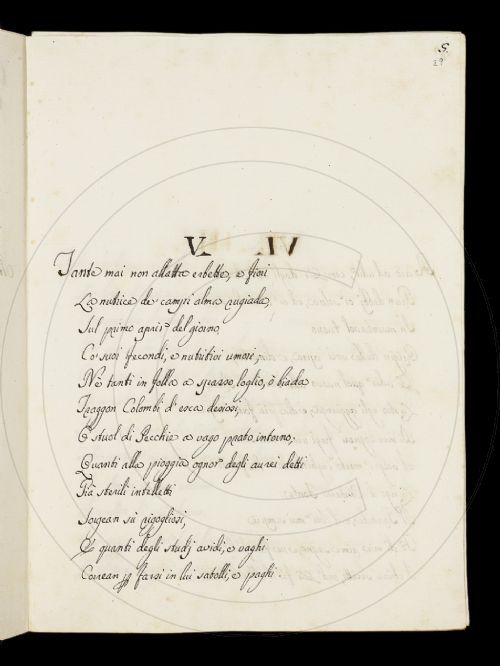 5.
29
V.
Tante mai non allatta erbette, e fiori
La nutrice de' campi alma rugiada,
Sul primo aprir del giorno
Co' suoi fecondi, e nutritivi umori;
Nè tanti in folla a sparso loglio, ò biada
Traggon Colombi d'esca desiosi,
O stuol di Pecchie a vago prato intorno;
Quanti alla pioggia ognor degli aurei detti
Già sterili intelletti
Sorgean sù rigogliosi,
E quanti degli studj avidi, e vaghi
Correan p farsi in lui satolli, e paghi.